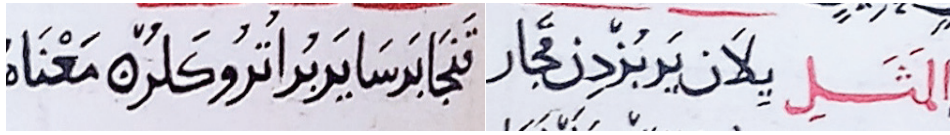 المَثَـلِ يِلَان يَرْبُزْدِن قَجَار تَنَجَا بَرسَا يَربُرا تُرُوكَلُرْ مَعْنَاهُ